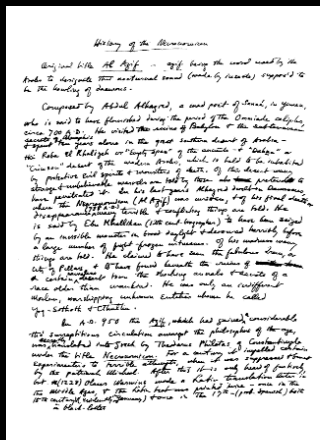 History of the Necronomicon
Original title Al Azif — azif being the word used by the
Arabs to designate that nocturnal sound (made by insects) suppos'd to
be the howling of daemons.
Composed by Abdul Alhazred, a mad poet of Sanaá, in Yemen,
who is said to have flourished during the period of the Ommiade caliphs,
circa 700 A.D. He visited the ruins of Babylon & the subterranean
secrets of Memphis
& spent ten years alone in the great southern desert of Arabia —
the Roba El Khaliyeh or "Empty Space" of the ancients — & "Dahna" or
"Crimson" desert of the modern Arabs, which is held to be inhabited
by protective evil spirits & monsters of death. Of this desert many
strange & unbelievable marvels are told by those who pretend to
have penetrated it. In his last years Alhazred dwelt in Damascus,
where the Necronomicon (Al Azif) was written, & of his final death or
disappearance (738 A.D.) many terrible & conflicting things are told. He
is said by Ebn Khallikan (12th cent. biographer) to have been seized
by an invisible monster in broad daylight & devoured horribly before
a large number of fright-frozen witnesses. Of his madness many
things are told. He claimed to have seen the fabulous Irem, or
City of Pillars, & to have found beneath the ruins of
a certain nameless desert town the shocking annals & secrets of a
race older than mankind. He was only an indifferent
Moslem, worshipping unknown Entities whom he called
Yog-Sothoth & Cthulhu.
In A.D. 950 the Azif, which had gained considerable
tho' surreptitious circulation amongst the philosophers of the age,
was secretly translated into Greek by Theodorus Philetas of Constantinople
under the title Necronomicon. For a century it impelled certain
experimenters to terrible attempts, when it was suppressed & burnt
by the patriarch Michael. After this it is only heard of furtively,
but (1228) Olaus Wormius made a Latin translation later in
the Middle Ages, & the Latin text was printed twice — once in the
15th century (evidently in Germany) & once in the 17th — (prob. Spanish)
in black-letter